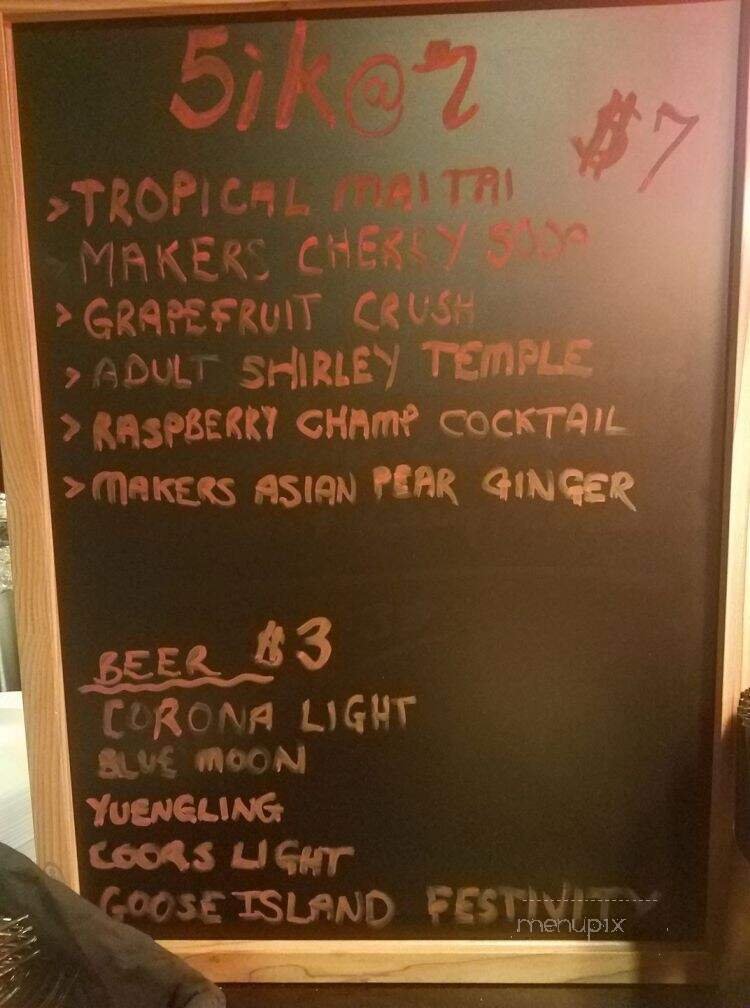 5ik@7
$7
>TROPICAL MAITAI
MAKERS CHERRY SODA
>GRAPEFRUIT CRUSH
>ADULT SHIRLEY TEMPLE
>RASPBERRY CHAMP COCKTAIL
>MAKERS ASIAN PEAR GINGER
BEER $3
CORONA LIGHT
BLUE MOON
YUENGLING
COORS LIGHT
GOOSE ISLAND FESTIVITY
menupix